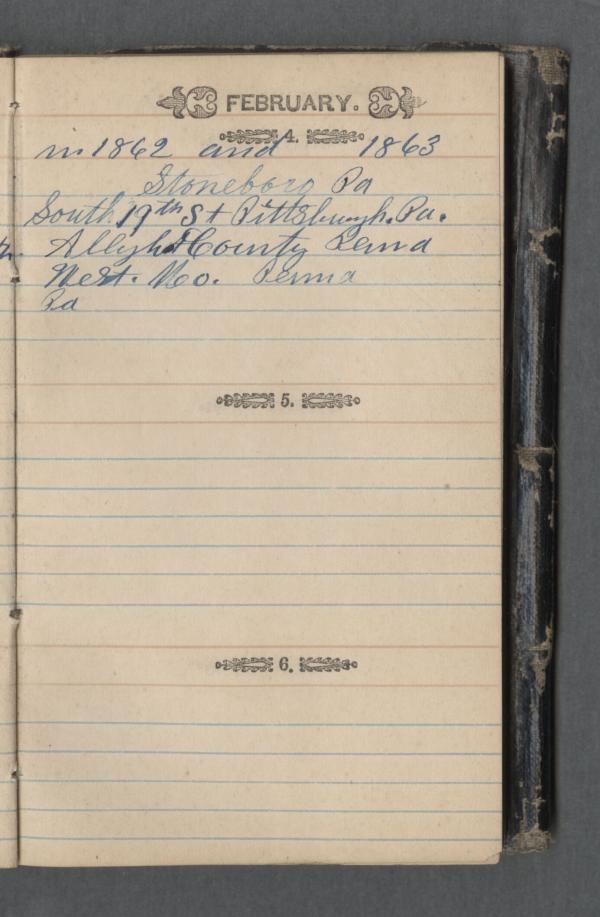 FEBRUARY.
4.
in 1862 and 1863
Stoneboro Pa
South 19th St Pittsburgh. Pa.
County Penna
West. Mo. Penna
Pa
5.
6.